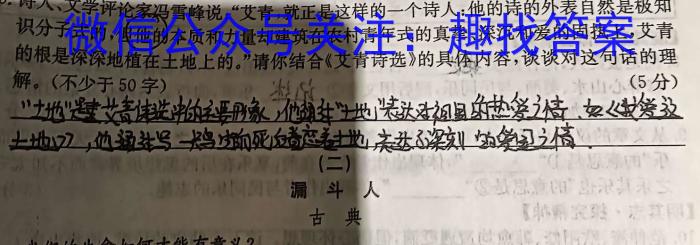 诗人、文学评论家冯雪峰说"艾青就正是这样的一个诗人:他的诗的外表自然是极知
识分子式的,但他的本质和力量却建筑在农村青年式的真挚、深沉和爱的固执上,艾青
的根是深深地植在土地上的。"请你结合《艾青诗选》的具体内容,谈谈对这句话的理
解。(不少于50字) (5分)
微信公众号关注:趣找答案
"土地"是艾青诗选中的主要形象,他通过"土地"表达对祖国的热爱之情,如《我爱这
土地》,他通过写一只鸟
土地,表达了深刻的爱国之情。
(二)
漏斗人
古典